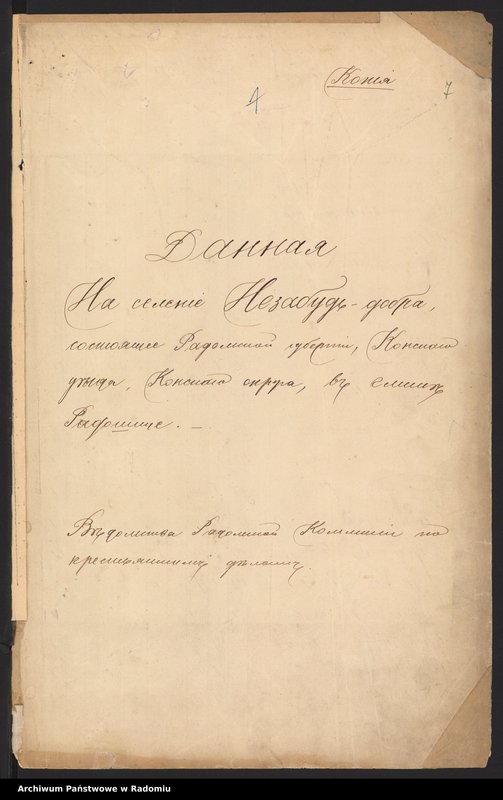 Копія
4
7
Данная
На селеніе Незабудь-добра,
состоящее Радомской губерніи, Конскаго
уѣзда, Конскаго округа, въ гминѣ
Радошице. —
Вѣдомства Радомской Коммисіи по
крестьянскимъ дѣламъ.
Archiwum Państwowe w Radomiu